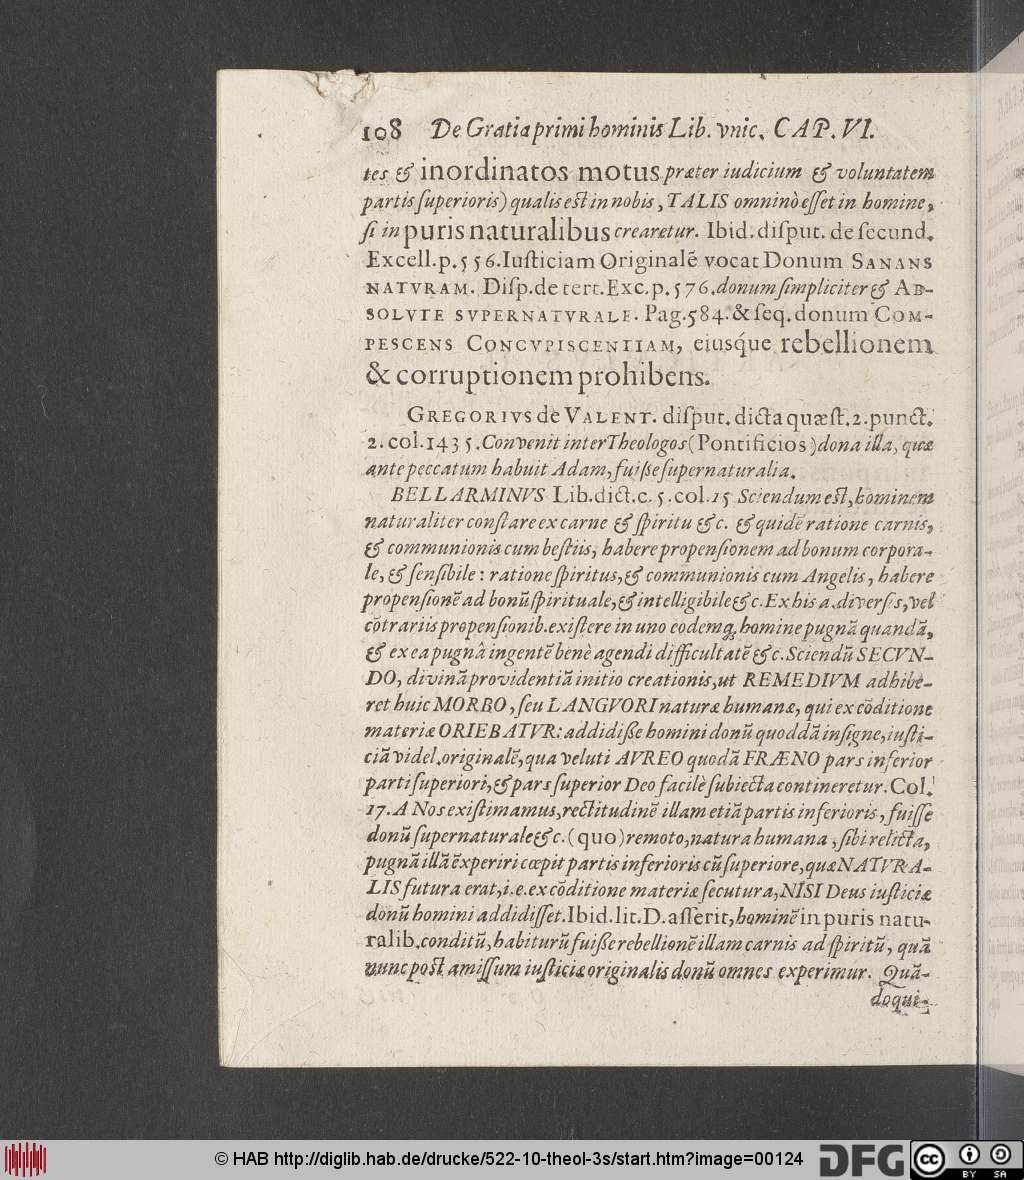 108 De Gratia primi hominis Lib. vnic. CAP. VI.
tes & inordinatos motus præter iudicium & voluntatem
partis ſuperioris) qualis eſt in nobis, TALIS omninò eſſet in homine,
ſi in puris naturalibus crearetur. Ibid. diſput. de ſecund.
Excell. p. 556. Iuſticiam Originalē vocat Donum SANANS
NATVRAM. Diſp. de tert. Exc. p. 576. donum ſimpliciter & AB-
SOLVTE SVPERNATVRALE. Pag. 584. & ſeq. donum COM-
PESCENS CONCVPISCENTIAM, eiusq́ue rebellionem
& corruptionem prohibens.
GREGORIVS de VALENT. diſput. dicta quæſt. 2. punct.
2. col. 1435. Convenit inter Theologos (Pontificios) dona illa, quæ
ante peccatum habuit Adam, fuiſſe ſupernaturalia.
BELLARMINVS Lib. dict. c. 5. col. 15 Sciendum eſt, hominem
naturaliter conſtare ex carne & ſpiritu &c. & quidē ratione carnis,
& communionis cum beſtiis, habere propenſionem ad bonum corpora-
le, & ſenſibile: ratione ſpiritus, & communionis cum Angelis, habere
propenſionē ad bonū ſpirituale, & intelligibile &c. Ex his a. diverſis, vel
cōtrariis propenſionib. exiſtere in uno eodemq; homine pugnā quandā,
& ex ea pugnâ ingentē benè agendi difficultatē &c. Sciendū SECVN-
DO, divinā providentiā initio creationis, ut REMEDIVM adhibe-
ret huic MORBO, ſeu LANGVORI naturæ humanæ, qui ex cōditione
materiæ ORIEBATVR: addidiſſe homini donū quoddā inſigne, iuſti-
ciā videl. originalē, qua veluti AVREO quodā FRÆNO pars inferior
parti ſuperiori, & pars ſuperior Deo facilè ſubiecta contineretur. Col.
17. A Nos exiſtimamus, rectitudinē illam etiā partis inferioris, fuiſſe
donū ſupernaturale &c. (quo) remoto, natura humana, ſibi relicta,
pugnā illā ēxperiri cœpit partis inferioris cū ſuperiore, quæ NATVRA-
LIS futura erat, i. e. ex cōditione materiæ ſecutura, NISI Deus iuſticiæ
donū homini addidiſſet. Ibid. lit. D. aſſerit, hominē in puris natu-
ralib. conditū, habiturū fuiſſe rebellionē illam carnis ad ſpiritū, quā
nunc poſt amiſſum iuſticiæ originalis donū omnes experimur. Quā-
doqui-
© HAB http://diglib.hab.de/drucke/522-10-theol-3s/start.htm?image=00124
DFG
cc
BY SA